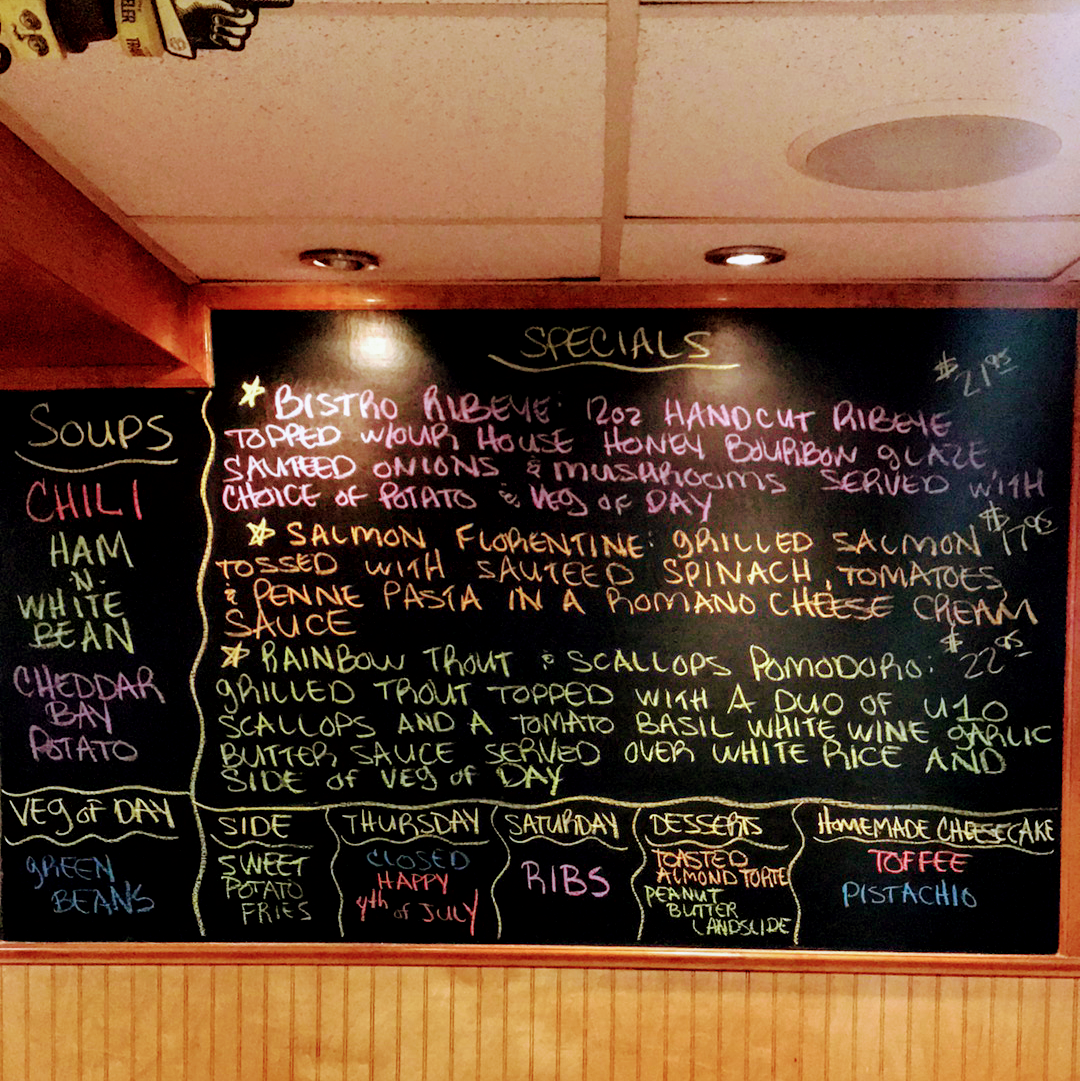 SOUPS
CHILI
HAM
'N'
WHITE
BEAN
CHEDDAR
BAY
POTATO
VEG OF DAY
GREEN
BEANS
SPECIALS
$21.95
BISTRO RIBEYE: 12OZ HANDCUT RIBEYE
TOPPED W/OUR HOUSE HONEY BOURBON GLAZE,
SAUTEED ONIONS & MUSHROOMS SERVED WITH
CHOICE OF POTATO & VEG OF DAY
SALMON FLORENTINE: GRILLED SALMON $17.95
TOSSED WITH SAUTEED SPINACH, TOMATOES,
& PENNE PASTA IN A ROMANO CHEESE CREAM
SAUCE
RAINBOW TROUT & SCALLOPS POMODORO: $22.95
GRILLED TROUT TOPPED WITH A DUO OF U10
SCALLOPS AND A TOMATO BASIL WHITE WINE GARLIC
BUTTER SAUCE SERVED OVER WHITE RICE AND
SIDE OF VEG OF DAY
SIDE
SWEET
POTATO
FRIES
THURSDAY
CLOSED
HAPPY
4th OF JULY
SATURDAY
RIBS
DESSERTS
TOASTED
ALMOND TORTE
PEANUT
BUTTER
LANDSLIDE
HOMEMADE CHEESECAKE
TOFFEE
PISTACHIO